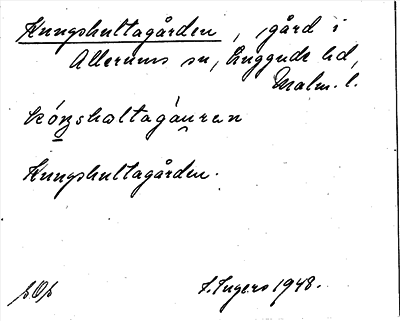 Kungshultagården, gård i
Allerums sn, Luggude hd,
Malm. l.
kóŋshæltagà̂uren
Kungshultagården.
I. Ingers 1948.